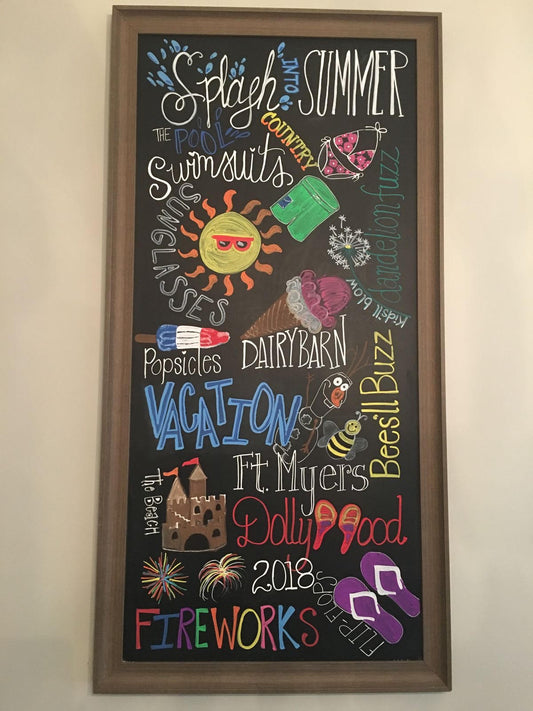 Splash INTO SUMMER
THE POOL
COUNTRY
Swimsuits
SUNGLASSES
dandelion fuzz
Kids'll blow
Popsicles
DAIRY BARN
Bees'll Buzz
VACATION
Ft. Myers
The Beach
Dollywood
2018
FLIP-FLOPS
FIREWORKS